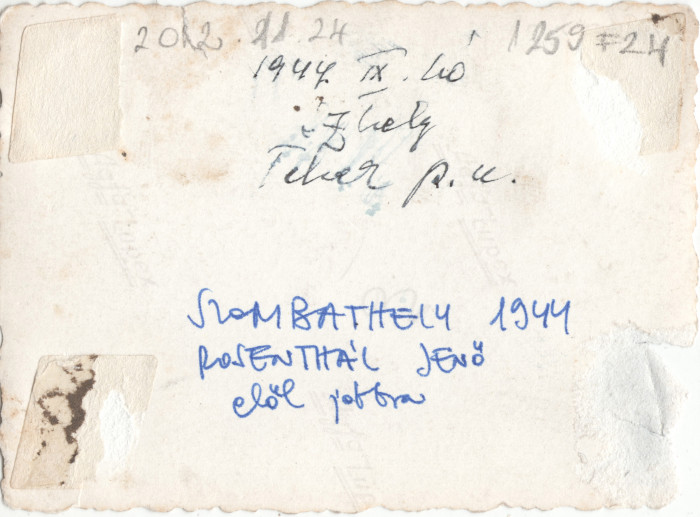 2012.11.24 1259=24
1944 IX. hó
Szhely
Fehér p. u.
SZOMBATHELY 1944
ROSENTHÁL JENŐ
elől jobbra